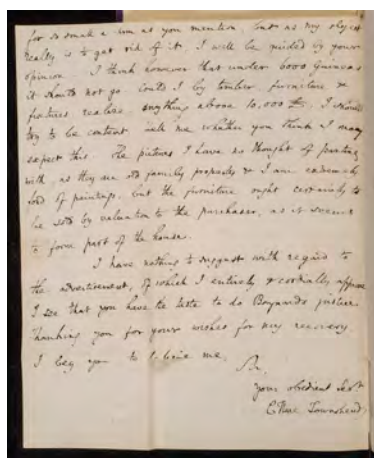 for so small a sum as you mention, but as my object
really is to get rid of it, I will be guided by your
opinion. I think however that under 6000 Guineas
it should not go. Could I by timber, furniture &
fixtures, realise anything above 10,000 £, I should
try to be content. Tell me whether you think I may
expect this. The pictures I have no thought of parting
with, as they are old family properties & I am extremely
fond of paintings, but the furniture ought certainly to
be sold by valuation to the purchaser, as it seems
to form part of the house.
I have nothing to suggest with regard to
the advertisement, of which I entirely & cordially approve.
I see that you have the taste to do justice.
Thanking you for your wishes for my recovery,
I beg you to believe me,
Sir,
your obedient Servt
C Hare Townshend.